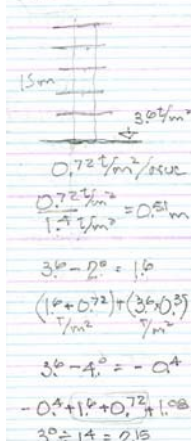 15m
3.6 t/m²
0,72 t/m²/
0.72 t/m²
1.4 t/m³ = 0.51 m
3.6 - 2.0 = 1.6
(1.6 + 0.72) + (3.6 x 0.3)
T/m² T/m²
3.6 - 4.0 = - 0.4
- 0.4 + 1.6 + 0.72 + 1.08
3.0 ÷ 1.4 = 2.15